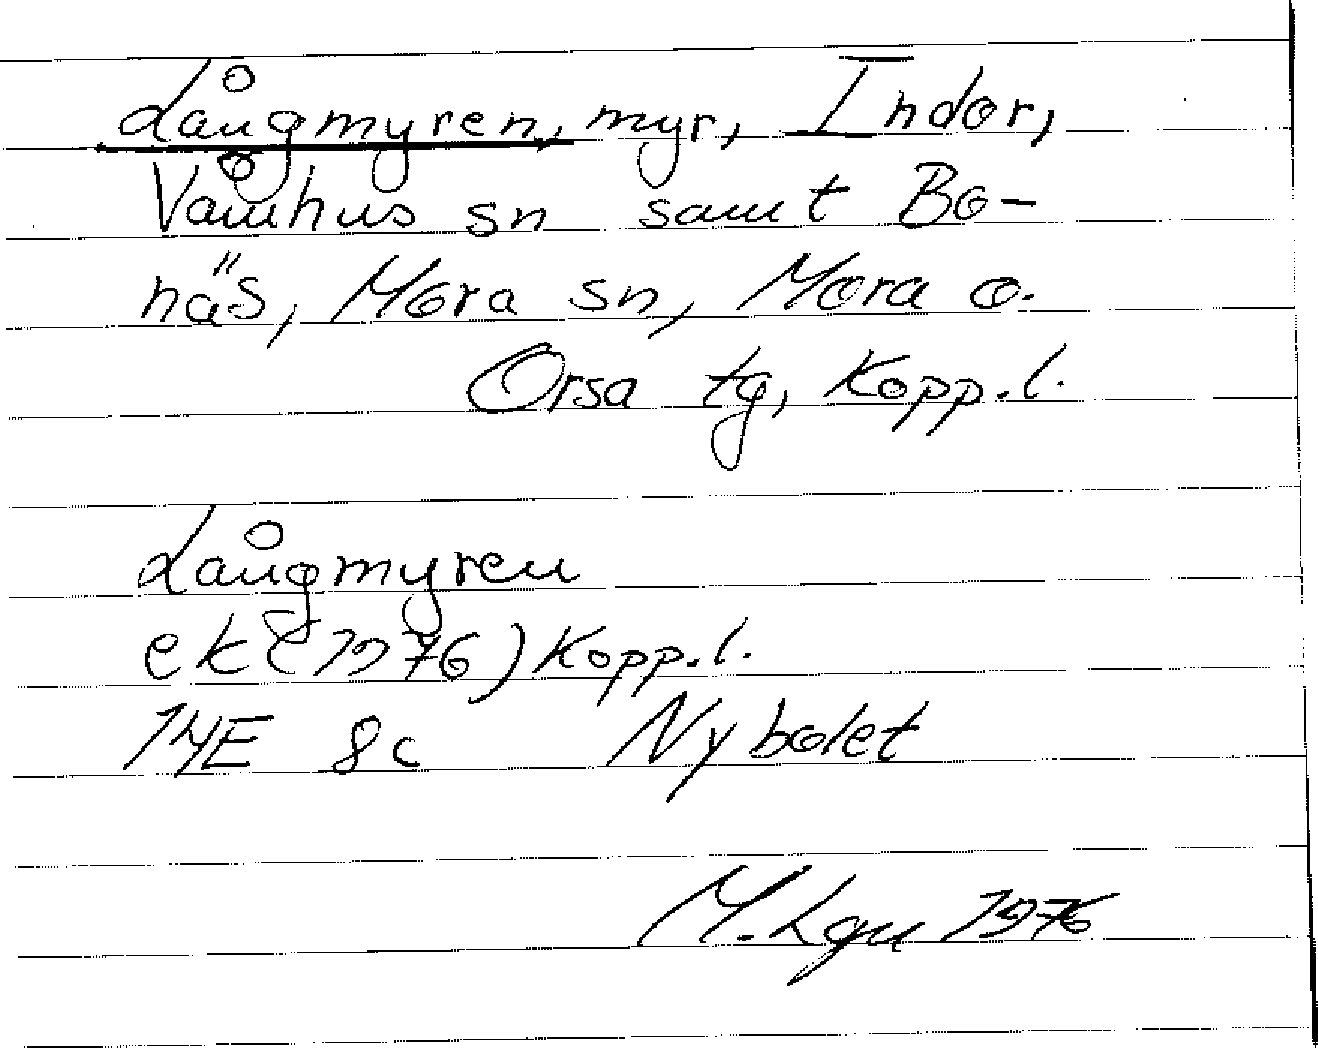 Långmyren, myr, Indor,
Våmhus sn samt Bo-
näs, Mora sn, Mora o.
Orsa tg, Kopp.l.
Långmyren
ek (1976) Kopp.l.
14E 8c Nybolet
M. Lgn 1976